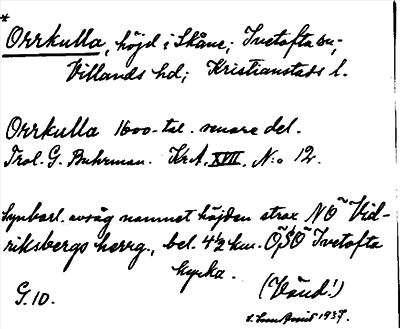 *
Orrkulla, höjd i Skåne; Ivetofta sn;
Villands hd; Kristianstads l.
Orrkulla 1600-tal. senare del.
Trol. G. Buhrman. Kr.A. XVII, N:o 12.
Synbarl. avsåg namnet höjden strax NO Vid-
riksbergs herrg., bel. 4½ km. OSO Ivetofta
kyrka.
G.10. (Vänd!)
1937.